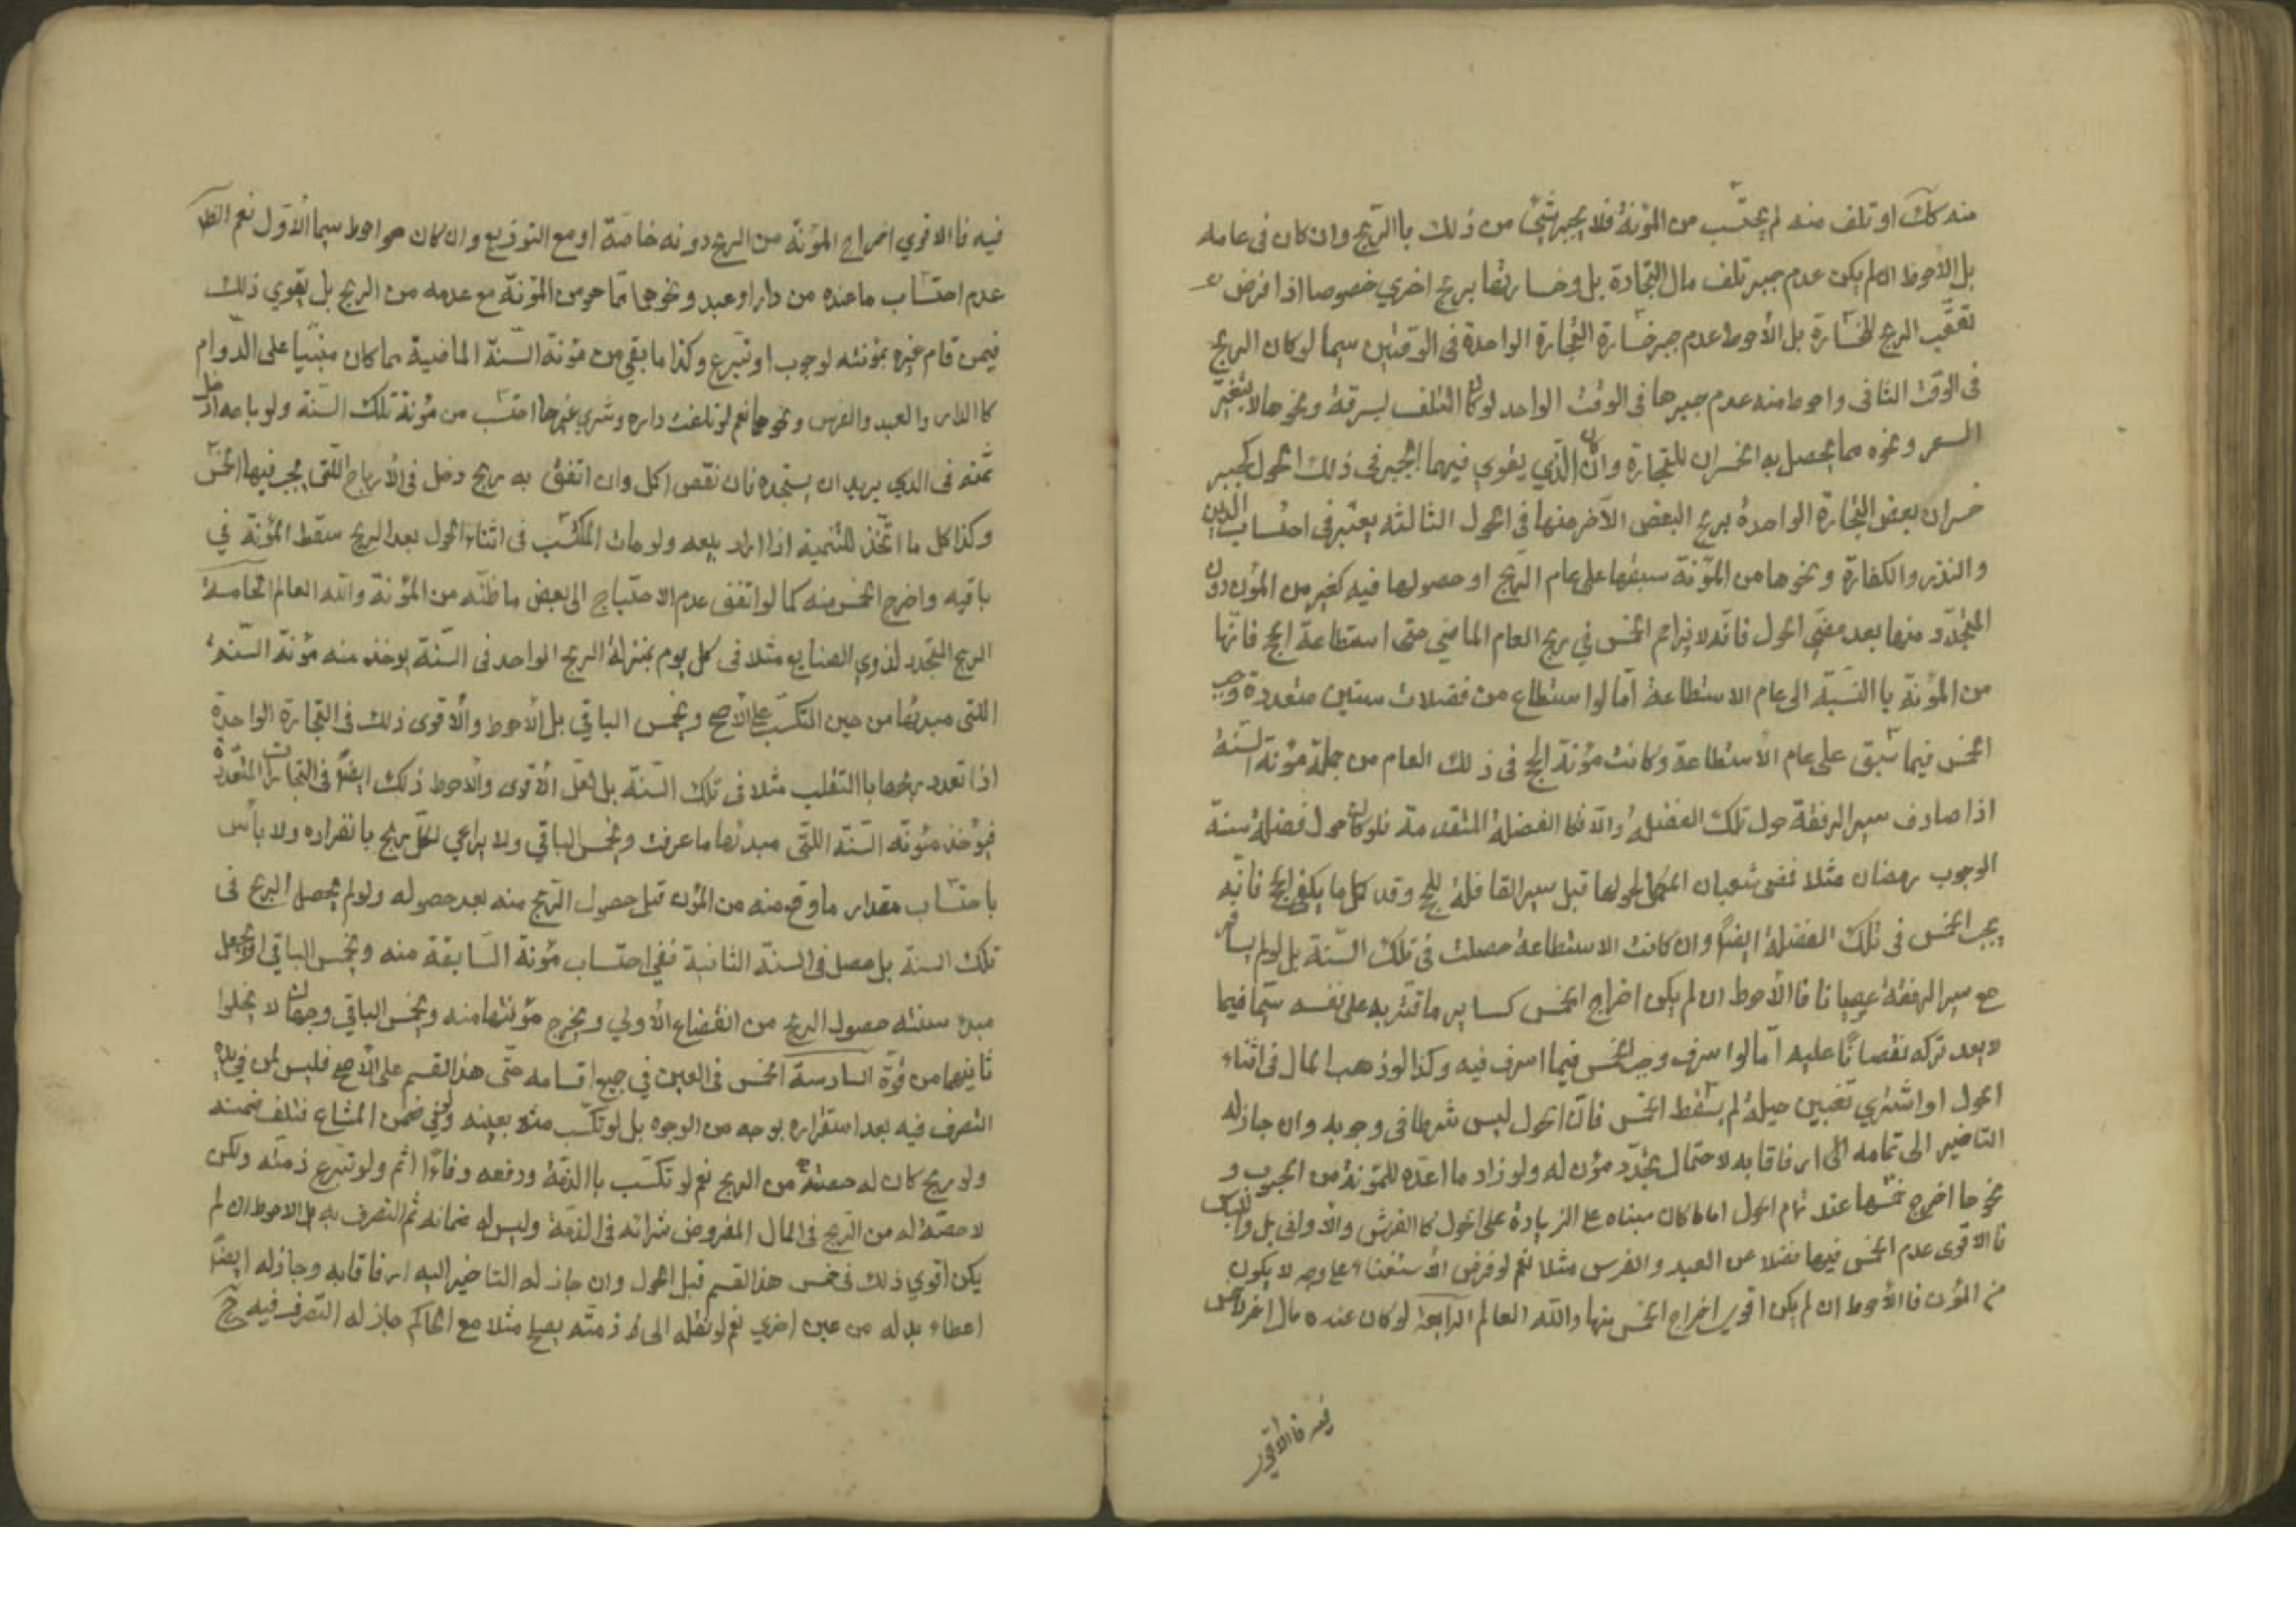 منه كك او تلف منه لم يحتسب من المؤنة فلا يجبر شئ من ذلك باالربح وان كان فى عامه
بل الأحوط ان لم يكن عدم جبر تلف مال التجارة بل وخسارتها بربح اخري خصوصا اذا فرض
تعقب الربح للخسارة بل الأحوط عدم جبر خسارة التجارة الواحدة فى الوقتين سيما لو كان الربح
فى الوقت الثانى واحوط منه عدم جبرها فى الوقت الواحد لو كان التلف لسرقة ونحوها لا بتغير
السعر ونحوه مما يحصل به الخسران للتجارة وان كان الذي يقوي فيهما الجبر فى ذلك الحول كجبر
خسران بعض التجارة الواحدة بربح البعض الآخر منها فى الحول الثالثه يعتبر فى احتساب الدين
والنذر والكفارة ونحوها من المؤنة سبقها على عام الربح او حصولها فيه كغير من المؤن دون
المتجدد منها بعد مضى الحول فانه لا يزاحم الخمس في ربح العام الماضي حتى استطاعة الحج فانها
من المؤنة باالنسبة الى عام الاستطاعة اما لو استطاع من فضلات سنين متعددة وجب
الخمس فيما سبق على عام الأستطاعة وكانت مؤنة الحج فى ذلك العام من جملة مؤنة السنة
اذا صادف سير الرفقة حول تلك الفضلة والا فكا الفضلة المتقدمة فلو كان حول فضلة سنة
الوجوب رمضان مثلا ففى شعبان الحولها قبل سير القافلة للحج وقد كل ما يكفى لحج فانه
يجب الخمس فى تلك الفضلة ايضا وان كانت الاستطاعة حصلت فى تلك السنة بل لو لم يسافر
مع سير الرفقة عصيانا فا الأحوط ان لم يكن اخراج الخمس كساير ما قتر به على نفسه سيما فيما
لا يعد تركه نقصانا عليه اما لو اسرف وجب الخمس فيما اسرف فيه وكذا لو ذهب المال فى اثناء
الحول او اشتري بغبن حيلة لم يسقط الخمس فان الحول ليس شرطا فى وجوبه وان جاز له
التاخير الى تمامه ارفاقا به لاحتمال تجدد مؤن له ولو زاد ما اعده للمؤنة من الحبوب و
نحوها اخرج خمسها عند تمام الحول اما ما كان مبناه على الزيادة على الحول كا الفرش والأوانى بل
فا الاقوى عدم الخمس فيها فضلا عن العبد والفرس مثلا نعم لو فرض الأستغناء على وجه لا يكون
من المؤن فا الأحوط ان لم يكن اقوى اخراج الخمس منها والله العالم الرابعة لو كان عنده مال اخر لا خمس
فيه فا الاقوى
فيه فا الاقوي اخراج المؤنة من الربح دونه خاصة او مع التوزيع وان كان هو احوط سيما الأول نعم الظ
عدم احتساب ما عنده من دار او عبد ونحوها مما هو من المؤنة مع عدمه من الربح بل يقوي ذلك
فيمن قام غيره بمؤنته لوجوب او تبرع وكذا ما بقي من مؤنة السنة الماضية مما كان مبنيا على الدوام
كا الدار والعبد والفرس ونحوها نعم لو تلفت داره وشري غيرها احتسب من مؤنة تلك السنة ولو باعه ادخل
ثمنه فى الذي يريد ان يستجده فان نقص اكل وان اتفق به ربح دخل فى الأرباح اللتى يجب فيها الخمس
وكذا كل ما اتخذ للتنمية اذا اراد بيعه ولو مات المكتسب فى اثناء الحول بعد الربح سقط المؤنة في
باقيه واخرج الخمس منه كما لو اتفق عدم الاحتياج الى بعض ما ظنه من المؤنة والله العالم الخامسة
الربح المتجدد لذوي الصنايع مثلا فى كل يوم بمنزلة الربح الواحد فى السنة يوخذ منه مؤنة السنة
اللتى مبدئها من حين التكسب على الأصح ويخمس الباقي بل الأحوط والأقوى ذلك فى التجارة الواحدة
اذا تعدد ربحها باالتقلب مثلا فى تلك السنة بل لعل الأقوى والأحوط ذلك ايضا فى التجارات المتعددة
فيؤخذ مئونة السنة اللتى مبدئها ما عرفت ويخمس الباقي ولا يراعي لكل ربح بانفراده ولا بأس
باحتساب مقدار ما وقع منه من المؤن قبل حصول الربح منه بعد حصوله ولو لم يحصل الربح فى
تلك السنة بل حصل فى السنة الثانية ففي احتساب مؤنة السابقة منه ويخمس الباقي او يجعل
مبدء سنته حصول الربح من انقضاء الأولي ويخرج مؤنتها منه ويخمس الباقي وجهان لا يخلوا
ثانيهما من قوة السادسة الخمس فى العين في جميع اقسامه حتى هذا القسم على الأصح فليس لمن في يده
التصرف فيه بعد استقراره بوجه من الوجوه بل لو تكسب منه بعينه ولو في ضمن المشاع فتلف ضمنه
ولو ربح كان له حصته من الربح نعم لو تكسب باالذمة ودفعه وفاءا اثم ولو تبرع ذمته ولكن
لا حصة له من الربح فى المال المفروض شرائه فى الذمة وليس له ضمانه ثم التصرف به بل الاحوط ان لم
يكن اقوي ذلك فى خمس هذا القسم قبل الحول وان جاز له التاخير اليه ارفاقا به وجاز له ايضا
اعطاء بدله من عين اخري نعم لو نقله الى ذمته بصلح مثلا مع الحاكم جاز له التصرف فيه ح